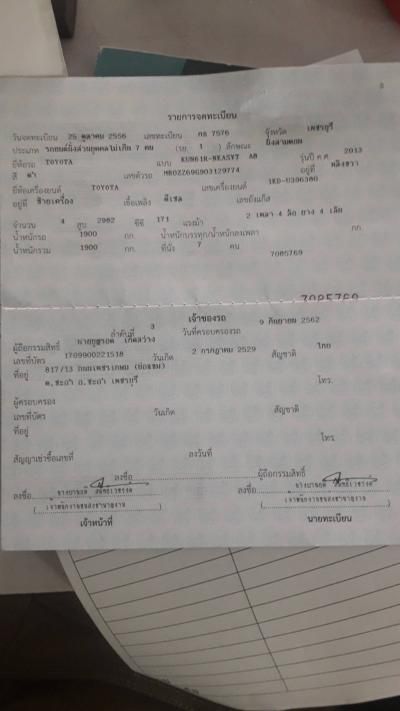 8
รายการจดทะเบียน
วันจดทะเบียน 25 ตุลาคม 2556 เลขทะเบียน กธ 7576 จังหวัด เพชรบุรี
ประเภท รถยนต์นั่งส่วนบุคคลไม่เกิน 7 คน (รย. 1 ) ลักษณะ นั่งสามตอน
ยี่ห้อรถ TOYOTA แบบ KUN61R-NKASYT A8 รุ่นปี ค.ศ. 2013
สี ดำ เลขตัวรถ อยู่ที่
ยี่ห้อเครื่องยนต์ TOYOTA เลขเครื่องยนต์ 1KD-U396380
อยู่ที่ ซ้ายเครื่อง เชื้อเพลิง ดีเซล เลขถังแก๊ส
จำนวน 4 สูบ 2982 ซีซี 171 แรงม้า 2 เพลา 4 ล้อ ยาง 4 เส้น
น้ำหนักรถ 1900 กก. น้ำหนักบรรทุก/น้ำหนักลงเพลา กก.
น้ำหนักรวม 1900 กก. ที่นั่ง 7 คน
7085769
7085769
เจ้าของรถ
ลำดับที่ 3 วันที่ครอบครองรถ 9 กันยายน 2562
ผู้ถือกรรมสิทธิ์
เลขที่บัตร 1709900221518 วันเกิด 2 กรกฎาคม 2529 สัญชาติ ไทย
ที่อยู่ 817/13 ถนนเพชรเกษม
ต.ชะอำ อ.ชะอำ เพชรบุรี โทร.
ผู้ครอบครอง
เลขที่บัตร วันเกิด สัญชาติ
ที่อยู่
โทร.
สัญญาเช่าซื้อเลขที่ ลงวันที่
ลงชื่อ ผู้ถือกรรมสิทธิ์
ลงชื่อ ลงชื่อ
เจ้าหน้าที่ นายทะเบียน